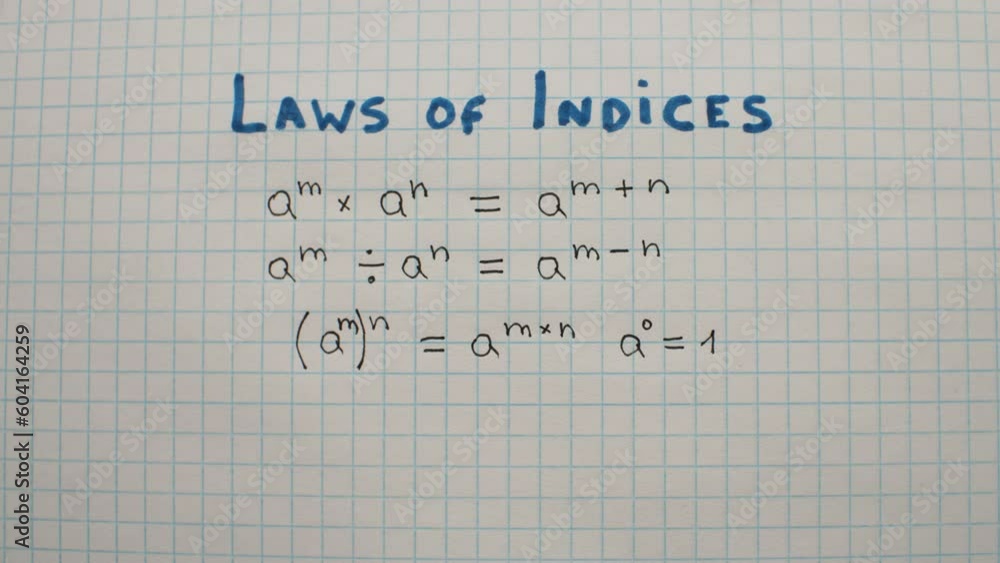 LAWS OF INDICES
aᵐ × aⁿ = aᵐ⁺ⁿ
aᵐ ÷ aⁿ = aᵐ⁻ⁿ
(aᵐ)ⁿ = aᵐ˟ⁿ a⁰ = 1
Adobe Stock | #604164259